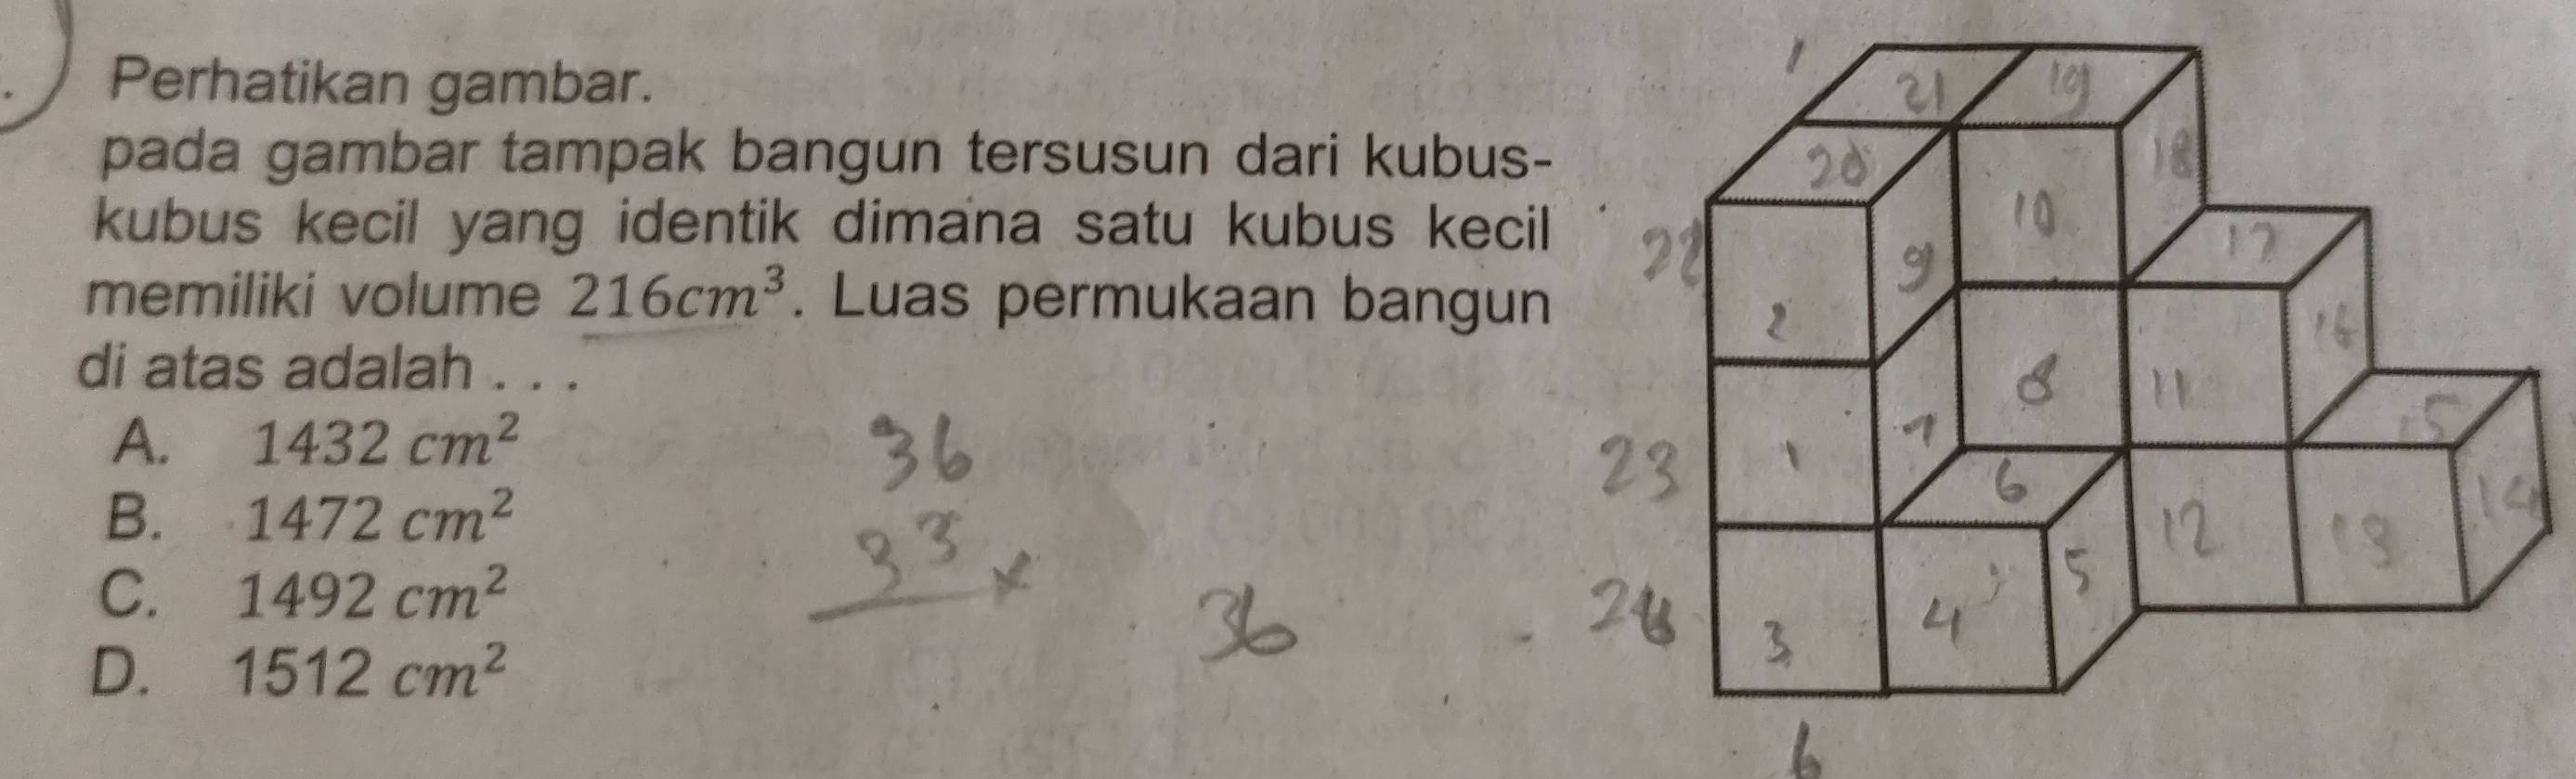 Perhatikan gambar.
pada gambar tampak bangun tersusun dari kubus-
kubus kecil yang identik dimana satu kubus kecil
memiliki volume 216cm³. Luas permukaan bangun
di atas adalah . . .
A. 1432 cm²
B. 1472 cm²
C. 1492 cm²
D. 1512 cm²
36
33 x
36
1
21
19
20
18
10
22
9
17
2
16
8
11
23
1
7
15
6
14
12
13
5
4
3
6